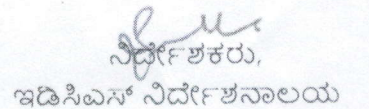 ನಿರ್ದೇಶಕರು,
ಇಡಿಸಿಎಸ್ ನಿರ್ದೇಶನಾಲಯ